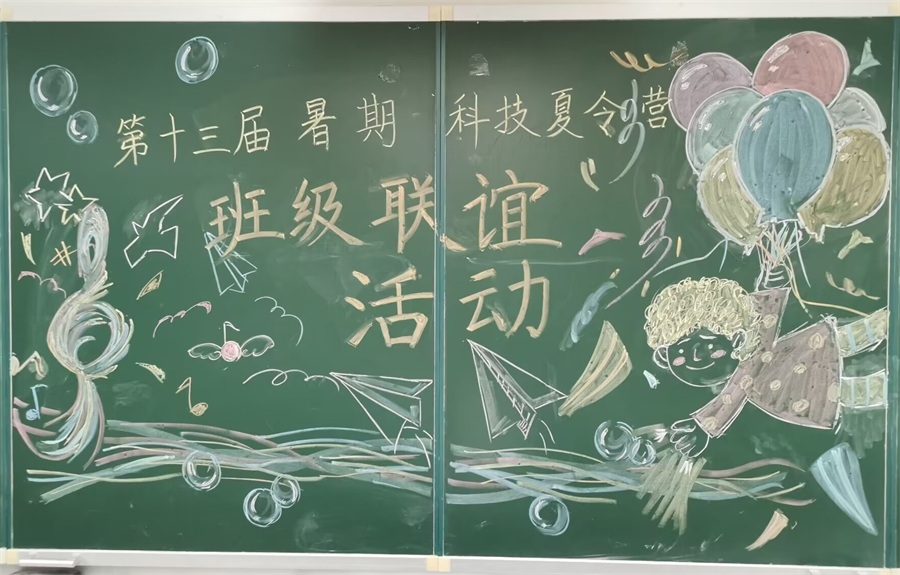 第十三届暑期科技夏令营
班级联谊
活动